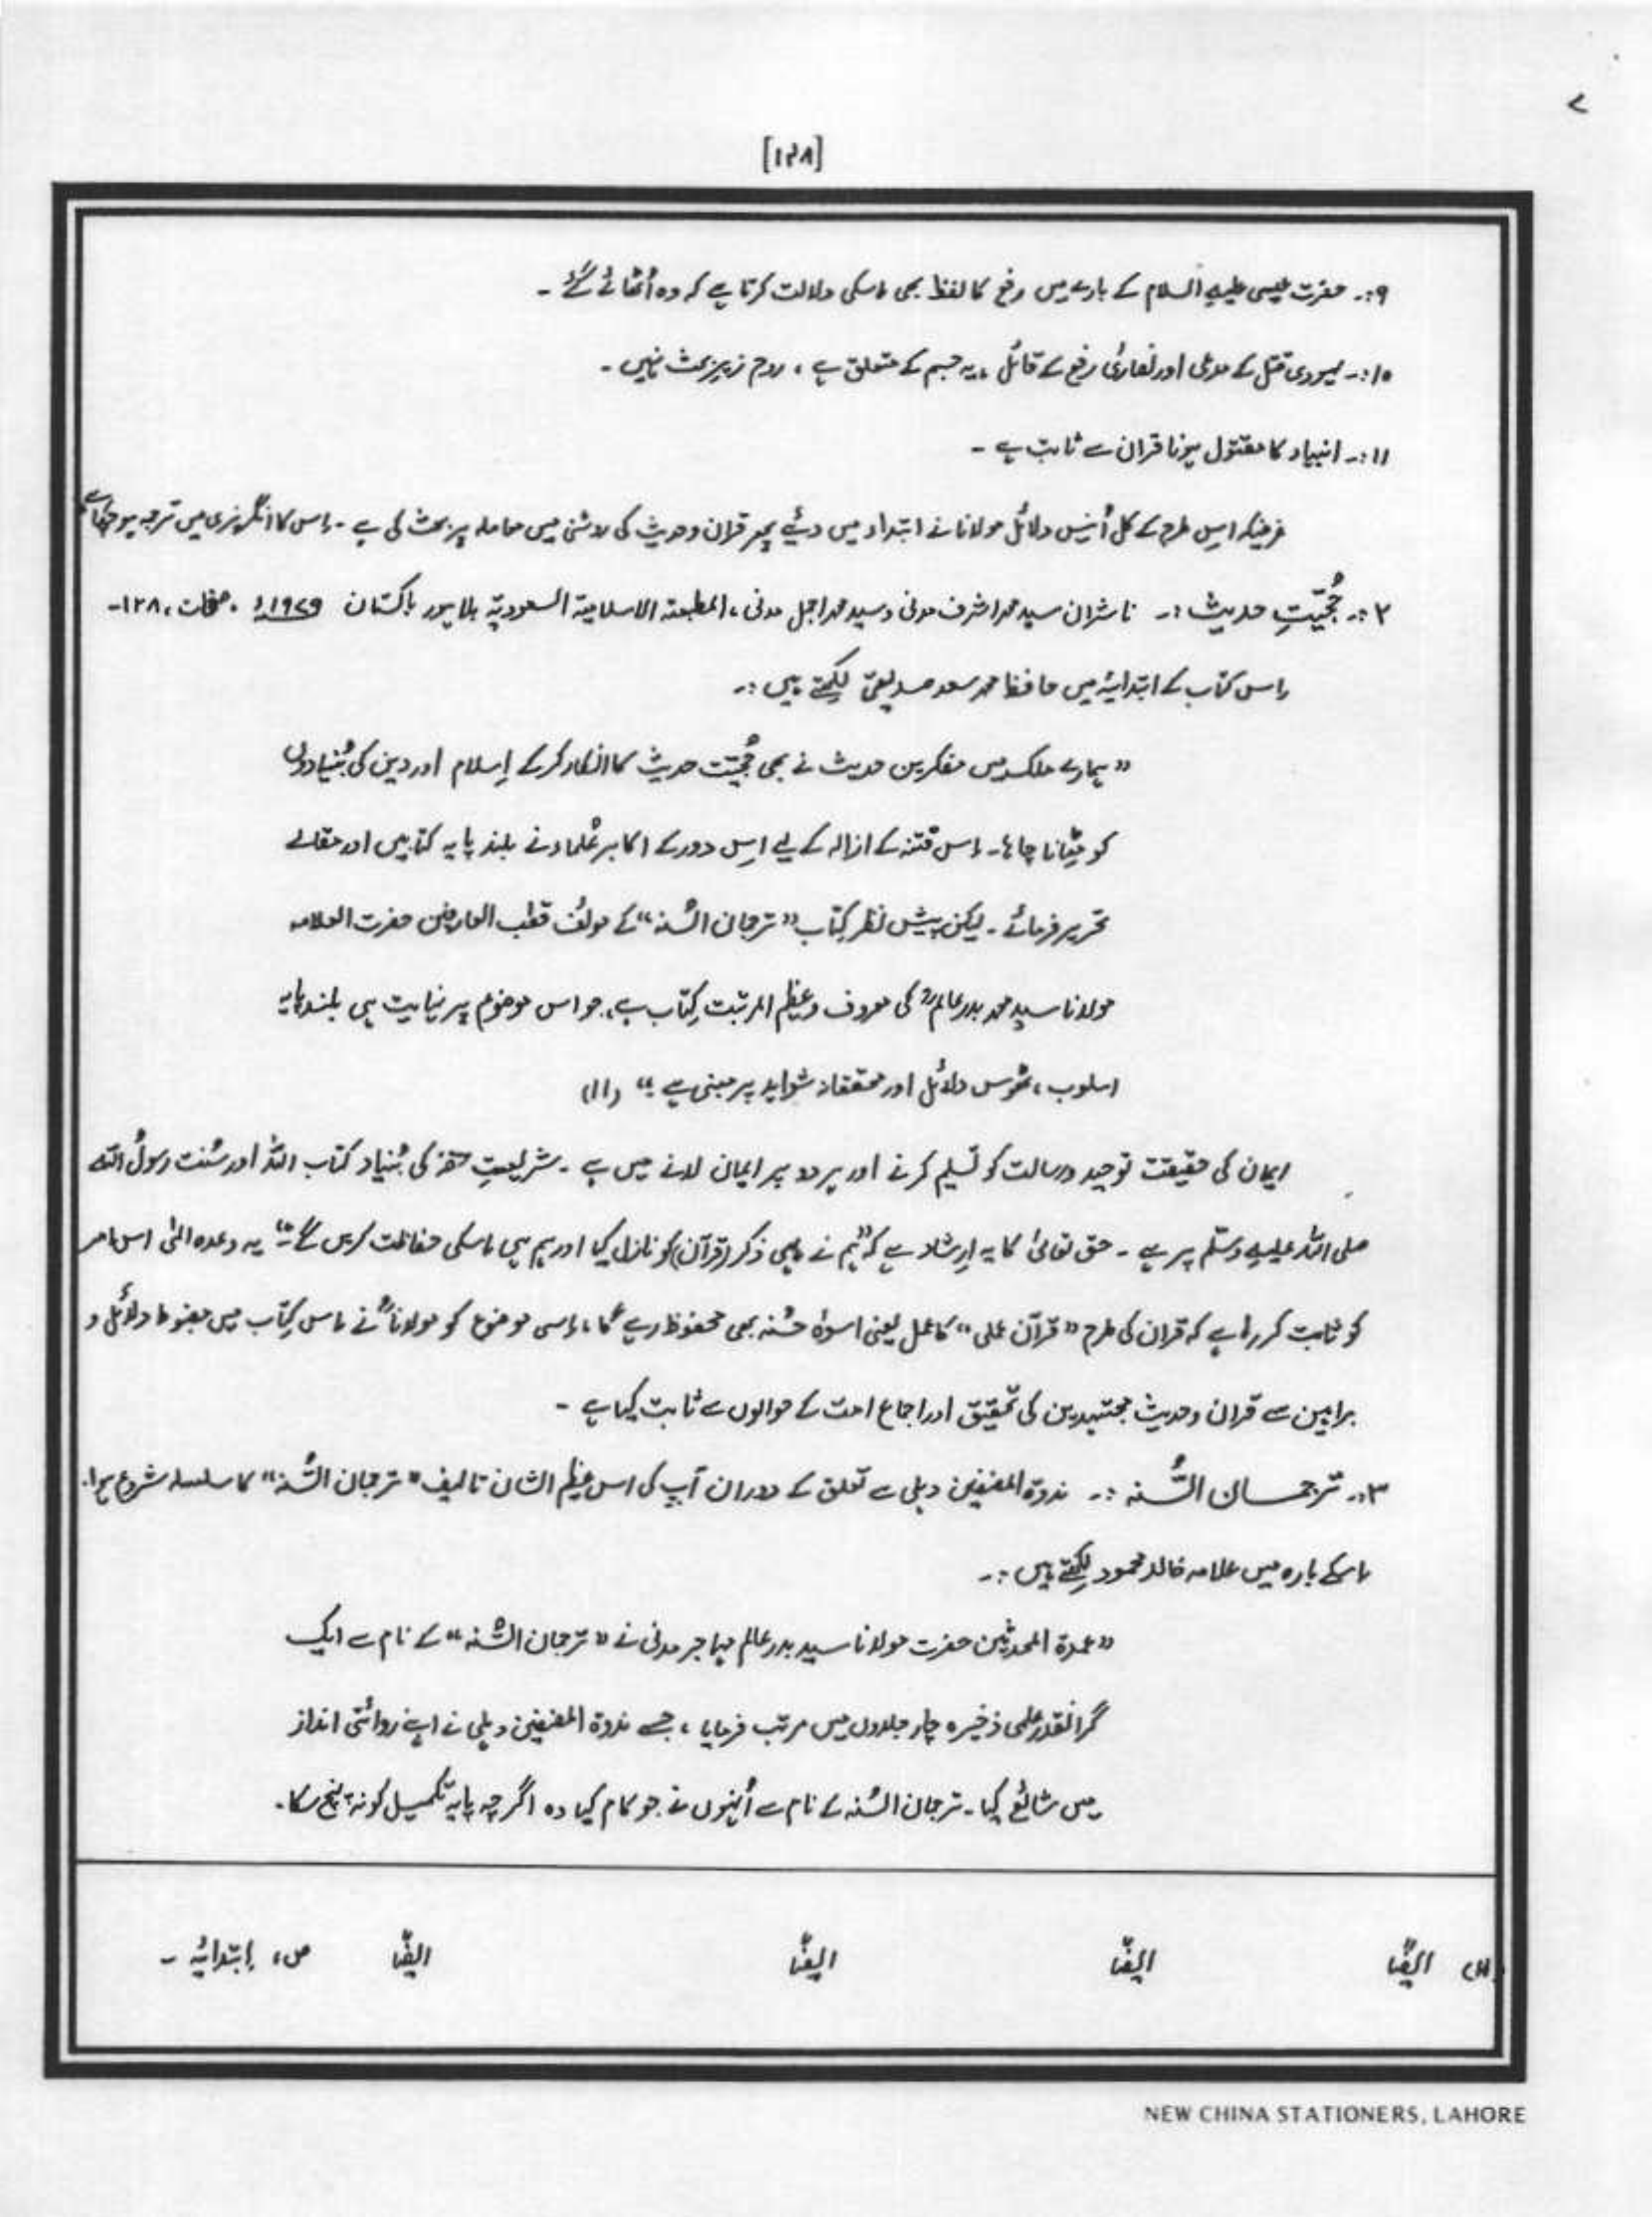 [۱۴۸]
۹:۔ حضرت عیسی علیہ السلام کے بارے میں رفع کا لفظ بھی اسکی دلالت کرتا ہے کہ وہ اُٹھائے گئے ۔
۱۰:۔ یہودی قتل کے مدعی اور نصاریٰ رفع کے قائل ، یہ جسم کے متعلق ہے ، روح زیرِ بحث نہیں ۔
۱۱:۔ انبیاء کا مقتول ہونا قرآن سے ثابت ہے ۔
غرضیکہ اس طرح کے کل اُنیس دلائل مولانا نے ابتداء میں دئیے پھر قرآن و حدیث کی روشنی میں معاملہ پر بحث کی ہے ۔ اس کا انگریزی میں ترجمہ ہو چکا ہے
۲:۔ حُجّیّتِ حدیث :۔ ناشران سید محمد اشرف مدنی و سید محمد اجمل مدنی ، المطبعۃ الاسلامیۃ السعودیۃ بلاہور پاکستان ۱۹۷۹ء ، صفحات ، ۱۲۸۔
اس کتاب کے ابتدائیہ میں حافظ محمد سعد صدیقی لکھتے ہیں :۔
” ہمارے ملک میں منکرین حدیث نے بھی حُجّیّت حدیث کا انکار کرکے اِسلام اور دین کی بُنیادوں
کو مِٹانا چاہا۔ اس فتنہ کے ازالہ کے لیے اس دور کے اکابر عُلماء نے بلند پایہ کتابیں اور مقالے
تحریر فرمائے ۔ لیکن پیش نظر کتاب ” ترجمان السُّنہ “ کے مولف قطب العارفین حضرت العلامہ
مولانا سید محمد بدر عالمؒ کی معروف و عظیم المرتبت کتاب ہے ، جو اس موضوع پر نہایت ہی بلند پایہ
اسلوب ، ٹھوس دلائل اور محققانہ شواہد پر مبنی ہے ۔“ (۱۱)
ایمان کی حقیقت توحید و رسالت کو تسلیم کرنے اور ہر دو پر ایمان لانے میں ہے ۔ شریعتِ حقہ کی بُنیاد کتاب اللہ اور سُنت رسولُ اللہ
صلی اللہ علیہ وسلم پر ہے ۔ حق تعالیٰ کا یہ اِرشاد ہے کہ ”ہم نے ہی ذکر (قرآن) کو نازل کیا اور ہم ہی اسکی حفاظت کریں گے ۔“ یہ وعدہ الٰہی اس امر
کو ثابت کر رہا ہے کہ قرآن کی طرح ” قرآن عملی “ کا عمل یعنی اسوۂ حسُنہ بھی محفوظ رہے گا ، اسی موضوع کو مولاناؒ نے اس کتاب میں مضبوط دلائل و
براہین سے قرآن و حدیث مجتہدین کی تحقیق اور اجماع امت کے حوالوں سے ثابت کیا ہے ۔
۳:۔ ترجمان السُّنہ :۔ ندوۃ المصنفین دہلی سے تعلق کے دوران آپ کی اس عظیم الشان تالیف ” ترجمان السُّنہ “ کا سلسلہ شروع ہوا۔
اسکے بارہ میں علامہ خالد محمود لکھتے ہیں :۔
” عمدۃ المحدثین حضرت مولانا سید بدر عالم مہاجر مدنی نے ” ترجمان السُّنہ “ کے نام سے ایک
گرانقدر علمی ذخیرہ چار جلدوں میں مرتب فرمایا ، جسے ندوۃ المصنفین دہلی نے اپنے روائتی انداز
میں شائع کیا ۔ ترجمان السُّنہ کے نام سے اُنہوں نے جو کام کیا وہ اگرچہ پایہ تکمیل کو نہ پہنچ سکا ۔
(۱۱) ایضًا ایضًا ایضًا ایضًا ص ، اِبتدائیہ ۔
NEW CHINA STATIONERS, LAHORE